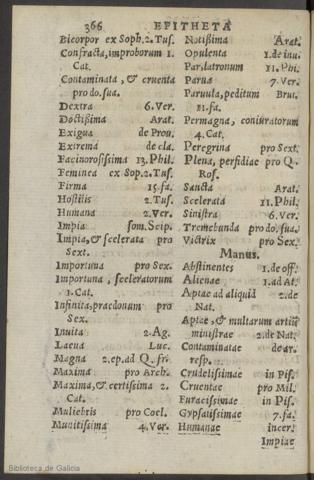 366 EPITHETA
Bicorpor ex Soph. 2. Tus.
Confracta, improborum 1.
Cat.
Contaminata, & cruenta
pro do. sua.
Dextra 6. Ver.
Doctissima Arat.
Exigua de Prou.
Extrema de cla.
Facinorosissima 13. Phil.
Feminea ex Sop. 2. Tus.
Firma 15. fa.
Hostilis 2. Tus.
Humana 2. Ver.
Impia som. Scip.
Impia, & scelerata pro
Sext.
Importuna pro Sex.
Importuna, sceleratorum
1. Cat.
Infinita, praedonum pro
Sex.
Inuita 2. Ag.
Laeua Luc.
Magna 2. ep. ad Q. fri.
Maxima pro Arch.
Maxima, & certissima 2.
Cat.
Muliebris pro Coel.
Munitissima 4. Ver.
Notissima Arat.
Opulenta 1. de inu.
Par, latronum 11. Phi.
Parua 7. Ver.
Paruula, peditum Brut.
11. fa.
Permagna, coniuratorum
4. Cat.
Peregrina pro Sext.
Plena, perfidiae pro Q.
Ros.
Sancta Arat.
Scelerata 11. Phil.
Sinistra 6. Ver.
Tremebunda pro do. sua.
Victrix pro Sex.
Manus.
Abstinentes 1. de off.
Alienae 1. ad At.
Aptae ad aliquid 2. de
Nat.
Aptae, & multarum artiū
ministrae 2. de Nat.
Contaminatae de ar.
resp.
Crudelissimae in Pis.
Cruentae pro Mil.
Furacissimae in Pis.
Gypsatissimae 7. fa.
Humanae incer.
Impiae
Biblioteca de Galicia